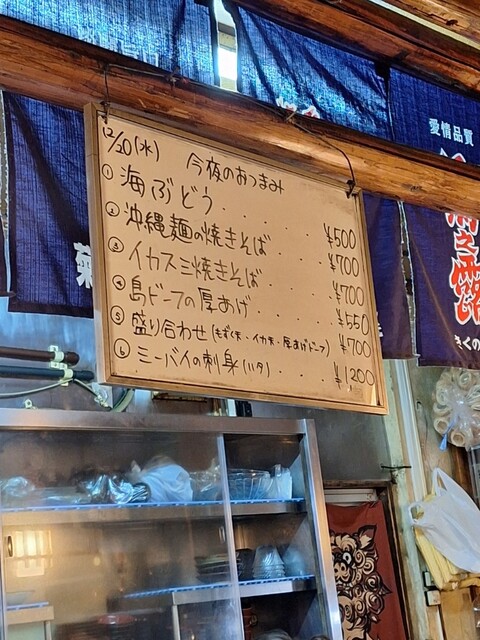 12/20(水) 今夜のおつまみ
① 海ぶどう・・・・・¥500
② 沖縄麺の焼きそば・・¥700
③ イカスミ焼きそば・・・¥700
④ 島ドーフの厚あげ・・・¥550
⑤ 盛り合わせ(もずく天・イカ天・厚あげドーフ)¥700
⑥ ミーバイの刺身(ハタ)・・・¥1200
愛情品質
きくの
菊